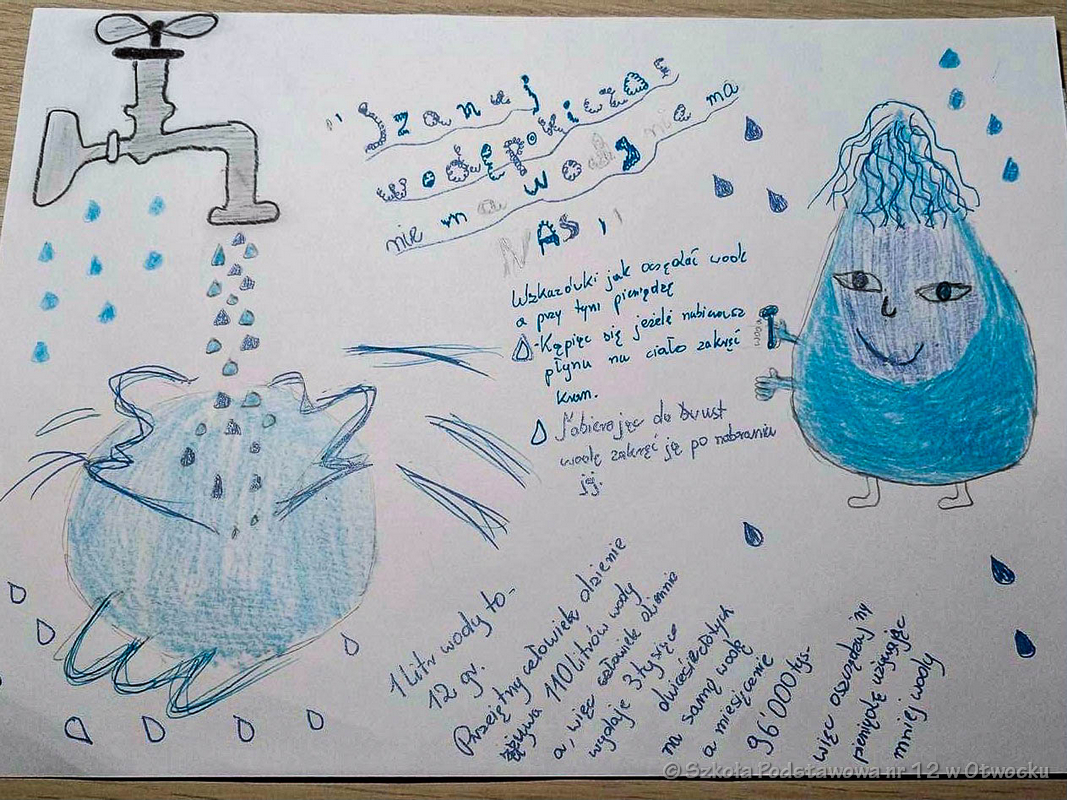 "Szanuj
wodę, powierzos
nie ma wody nie ma
NAS"
Wskazówki jak oszędzać wode
a przy tym pieniądze
- Kąpięc się jeżeli nabierzesz
płynu na ciało zakręć
kran.
Nabierając do brust
wodę zakręć ją po nabraniu
jej.
woda
1 litr wody to -
12 gr.
Przeiętny człowiek dzienie
zżywa 110 litrów wody
a, więc człowiek dziennie
wydaje 3 tysiące
dwieście złotych
na samą wodę
a miesięcznie
96'000 tys-
więc oszczędzajmy
pieniądze używając
mniej wody
© Szkoła Podstawowa nr 12 w Otwocku